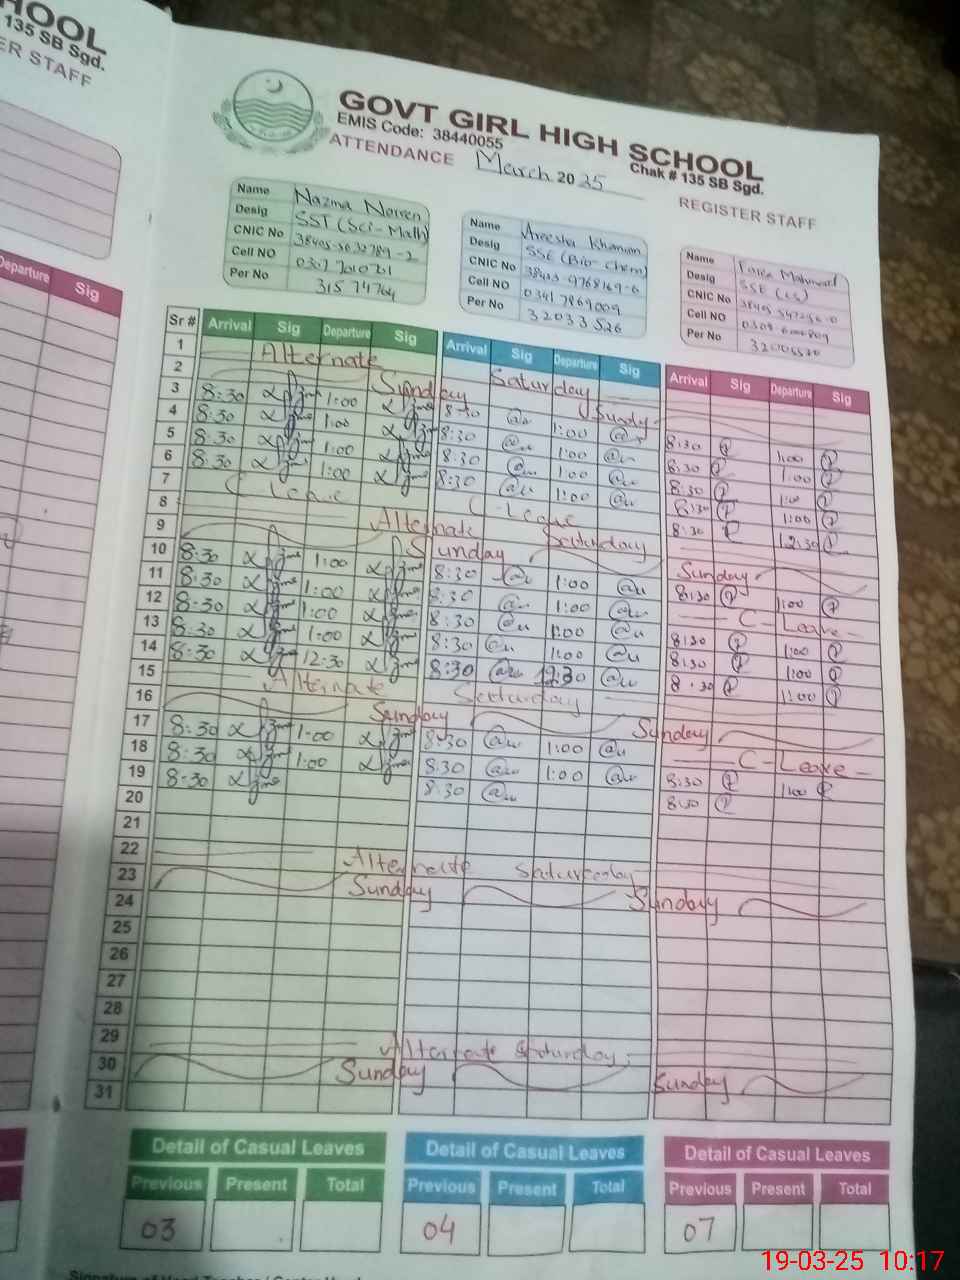 HOOL
135 SB Sgd.
ER STAFF
Departure Sig
GOVT GIRL HIGH SCHOOL
EMIS Code: 38440055
Chak # 135 SB Sgd.
ATTENDANCE March 2025 REGISTER STAFF
Name Nazma Norren
Desig SST (Sci-Math)
CNIC No
Cell No
Per No
Name Areesha Khanum
Desig SSE (Bio-Chem)
CNIC No
Cell No
Per No 32033526
Name Mahmood
Desig SSE
CNIC No
Cell No
Per No
Sr # Arrival Sig Departure Sig Arrival Sig Departure Sig Arrival Sig Departure Sig
1 Alternate Saturday
2 Sunday Sunday
3 8:30 1:00 8:30 1:00 8:30 1:00
4 8:30 1:00 8:30 1:00 8:30 1:00
5 8:30 1:00 8:30 1:00 8:30 1:00
6 8:30 1:00 8:30 1:00 8:30 1:00
7 C Leave C-Leave 8:30 12:30
8 Alternate Saturday
9 Sunday Sunday
10 8:30 1:00 8:30 1:00 8:30 1:00
11 8:30 1:00 8:30 1:00 C-Leave
12 8:30 1:00 8:30 1:00 8:30 1:00
13 8:30 1:00 8:30 1:00 8:30 1:00
14 8:30 12:30 8:30 12:30 8:30 1:00
15 Alternate Saturday
16 Sunday Sunday
17 8:30 1:00 8:30 1:00 C-Leave
18 8:30 1:00 8:30 1:00 8:30 1:00
19 8:30 8:30 8:30
20
21
22 Alternate Saturday
23 Sunday Sunday
24
25
26
27
28
29 Alternate Saturday
30 Sunday Sunday
31
Detail of Casual Leaves Detail of Casual Leaves Detail of Casual Leaves
Previous Present Total Previous Present Total Previous Present Total
03 04 07
19-03-25 10:17